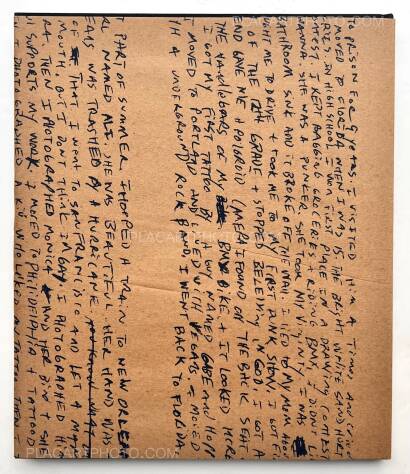 PRISON FOR 9 YEARS. I VISITED HIM A AND
MOVED TO FLORIDA WHEN I WAS 15. THE BRIGHT WHITE SAND HURT
IN HIGH SCHOOL I WON FIRST PLACE IN A DRAWING CONTEST
I KEPT BAGGING GROCERIES + RIDING BMX. I DIDN'T LI
SHE WAS A PUNKER. SHE TOOK MY VIRGINITY I WAS
ATHROOM SINK AND IT BROKE OFF THE WALL I LIED TO MY MOM AB
GHT ME TO DRIVE + TOOK ME TO MY FIRST PUNK SHOW. I GOT FI
OF THE 12TH GRADE + STOPPED BELEIVING IN GOD. I GOT A
END GAVE ME A POLAROID CAMERA I FOUND ON THE BACK SEAT
THE HANDLEBARS OF MY BMX BIKE + IT LOOKED
I GOT MY FIRST TATTOO BY A GUY NAMED GABE AND HOPP
I MOVED TO PORTLAND AND LIVED WITH VEGANS + MOVED
TH A UNDERGROUND ROCK BAND. I WENT BACK TO FLORIDA
T PART OF SUMMER I HOPPED A TRAIN TO NEW ORLEA
RL NAMED ALI. SHE WAS BEAUTIFUL. HER HAND WAS
EANS WAS TRASHED BY A HURRICANE.
OF THAT I WENT TO SAN FRANCISCO AND LET A
MOUTH. BUT I DONT THINK IM GAY I PHOTOGRAPHED HI
RA. THEN I PHOTOGRAPHED MONICA AND HER
U SUPPORTS MY WORK I MOVED TO PHILIDELPHIA + TATTOOD
I PHOTOGRAPHED A KID WHO LIKED